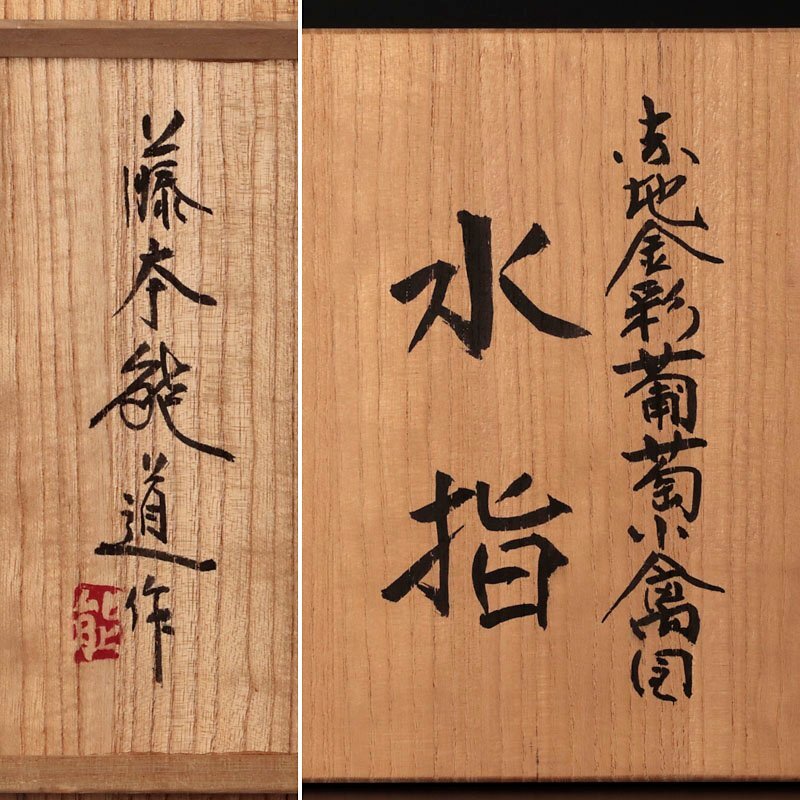 藤本能道作
能
赤地金彩葡萄小禽図
水指